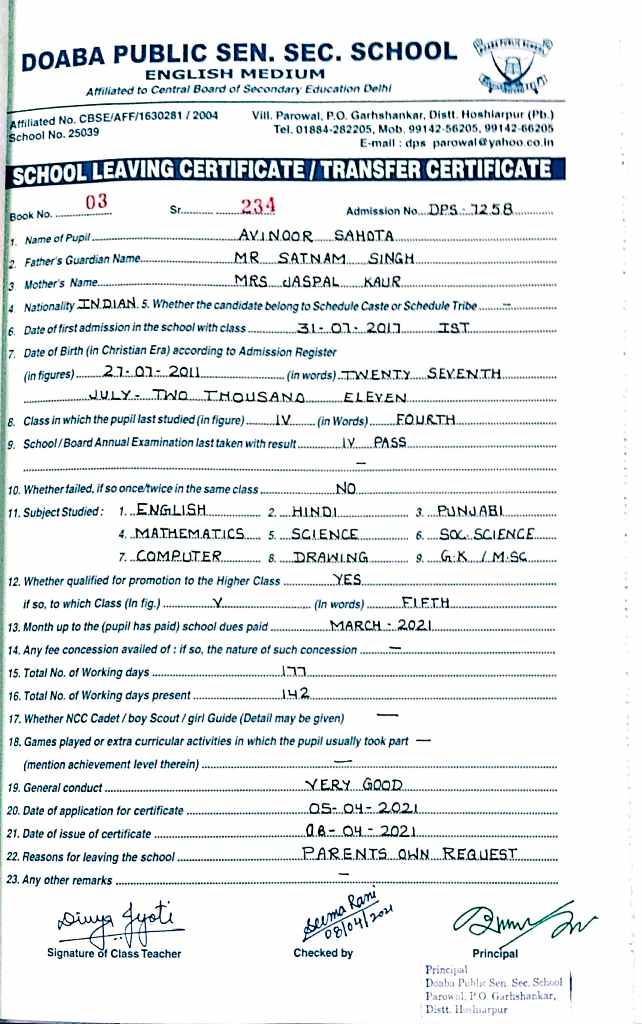 DOABA PUBLIC SEN. SEC. SCHOOL
ENGLISH MEDIUM
Affiliated to Central Board of Secondary Education Delhi
DOABA PUBLIC SCHOOL
Affiliated No. CBSE/AFF/1630281 / 2004
School No. 25039
Vill. Parowal, P.O. Garhshankar, Distt. Hoshiarpur (Pb.)
Tel. 01884-282205, Mob. 99142-56205, 99142-66205
E-mail : dps_parowal@yahoo.co.in
SCHOOL LEAVING CERTIFICATE / TRANSFER CERTIFICATE
Book No. 03 Sr. 234 Admission No. DPS-7258
1. Name of Pupil AVINOOR SAHOTA
2. Father's Guardian Name MR SATNAM SINGH
3. Mother's Name MRS JASPAL KAUR
4. Nationality INDIAN 5. Whether the candidate belong to Schedule Caste or Schedule Tribe —
6. Date of first admission in the school with class 31-07-2017 IST
7. Date of Birth (in Christian Era) according to Admission Register
(in figures) 27-07-2011 (in words) TWENTY SEVENTH
JULY- TWO THOUSAND ELEVEN
8. Class in which the pupil last studied (in figure) IV (in Words) FOURTH
9. School / Board Annual Examination last taken with result IV PASS
—
10. Whether failed, if so once/twice in the same class NO
11. Subject Studied : 1. ENGLISH 2. HINDI 3. PUNJABI
4. MATHEMATICS 5. SCIENCE 6. SOC. SCIENCE
7. COMPUTER 8. DRAWING 9. G.K / M.SC
12. Whether qualified for promotion to the Higher Class YES
if so, to which Class (In fig.) V (In words) FIFTH
13. Month up to the (pupil has paid) school dues paid MARCH - 2021
14. Any fee concession availed of : if so, the nature of such concession —
15. Total No. of Working days 177
16. Total No. of Working days present 142
17. Whether NCC Cadet / boy Scout / girl Guide (Detail may be given) —
18. Games played or extra curricular activities in which the pupil usually took part —
(mention achievement level therein) —
19. General conduct VERY GOOD
20. Date of application for certificate 05-04-2021
21. Date of issue of certificate 08-04-2021
22. Reasons for leaving the school PARENTS OWN REQUEST
23. Any other remarks —
Divya Jyoti
Seema Rani
08/04/2021
Signature of Class Teacher Checked by Principal
Principal
Doaba Public Sen. Sec. School
Parowal, P.O. Garhshankar,
Distt. Hoshiarpur